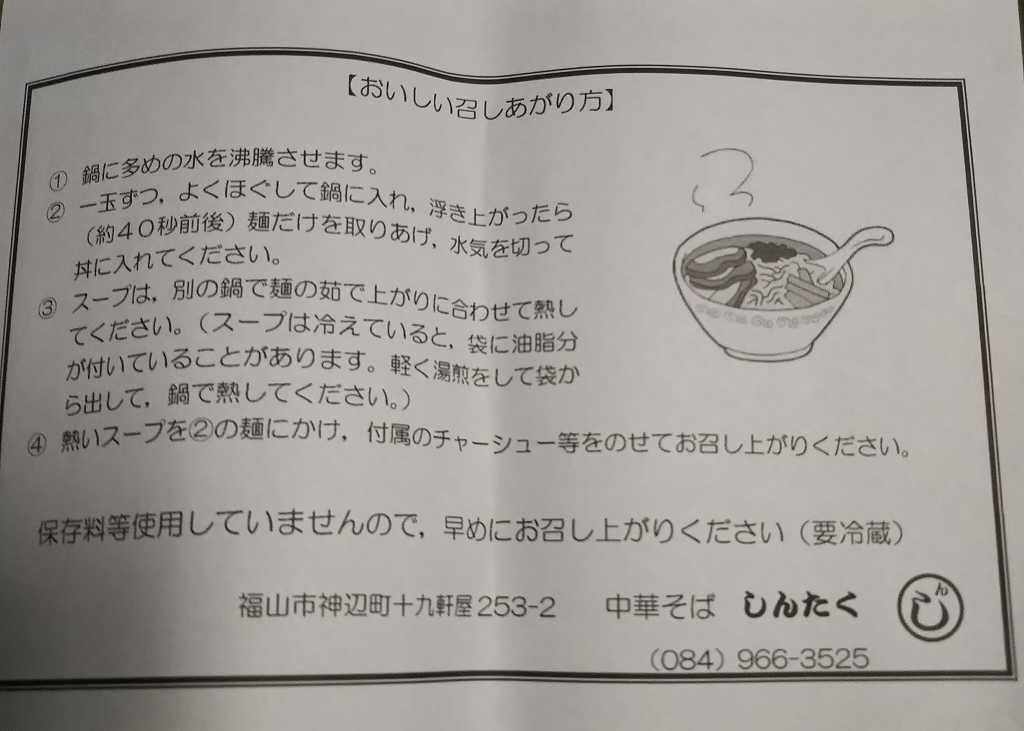 【おいしい召しあがり方】
① 鍋に多めの水を沸騰させます。
② 一玉ずつ，よくほぐして鍋に入れ，浮き上がったら
（約４０秒前後）麺だけを取りあげ，水気を切って
丼に入れてください。
③ スープは，別の鍋で麺の茹で上がりに合わせて熱し
てください。（スープは冷えていると，袋に油脂分
が付いていることがあります。軽く湯煎をして袋か
ら出して，鍋で熱してください。）
④ 熱いスープを②の麺にかけ，付属のチャーシュー等をのせてお召し上がりください。
保存料等使用していませんので，早めにお召し上がりください（要冷蔵）
福山市神辺町十九軒屋253-2　中華そば　しんたく
しん
（084）966-3525